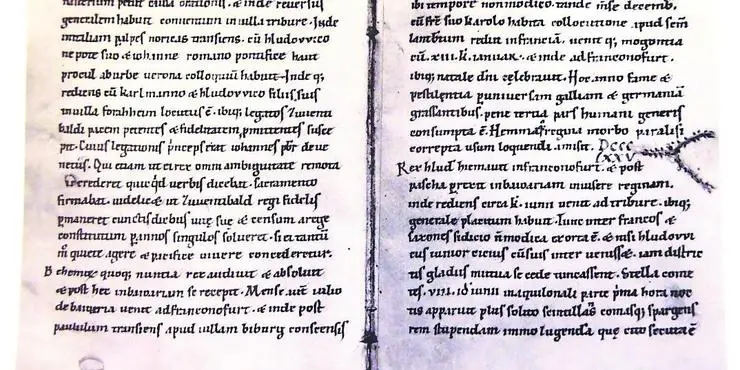 nasterium petiit causa orationis. & inde reuersus
generalem habuit conuentum in uilla tribure. Inde
in italiam p alpes noricas transiens, cū hludouuico
nepote suo & iohanne romano pontifice haut
procul ab urbe uerona colloquiū habuit. Inde q;
rediens cū karlmanno & hludouuico filiis suis
in uilla forahheim locutus ē. ibiq; legatos Zuuenti
baldi pacem petentes & fidelitatem pmittentes susce
pit. Cuius legationis princeps erat iohannes pbr de ue
netiis. Qui etiam ut ei rex omni ambiguitate remota
crederet quicqd uerbis dicebat. sacramento
firmabat. uidelicet ut Zuuentibald regi fidelis
pmaneret cunctis diebus uitę suę & censum a rege
constitutum p annos singulos solueret. si ei tantū
m quiete agere & pacifice uiuere concederetur.
quoq; nuntia rex audiuit & absoluit
& post hec in baiuuariam se recepit. Mense iulio
de baiuaria uenit ad franconofurt. & inde post
paululum transiens apud uillam biburg consensis
ibi tempore non modico. tande mse decemb.
cū frē suo karolo habita collocutione apud sēm
lambtum redut in franciā. uenit q; mogontia
& inde ad franconofurt.
ibiq; natale dni cęlebrauit. Hoc anno fame &
pestilentia p uniuersam galliam & germaniā
grassantibus. pene tertia pars humani generis
consumpta ē. Hemma regina morbo paralisi
correpta usum loquendi amisit. DCCC
LXXV
Rex hlud hiemauit in franconofurt. & post
pascha in baiuuariam inuisere reginam.
inde rediens circa k. iunii uenit ad tribure. ibiq;
generale placitum habuit. Tunc inter francos &
saxones sedicio ñ modica exorta ē. & nisi hludouui
cus iunior eicius cū suis inter uenisset. iam districtis
gladiis mutua se cede truncassent. Stella come
tes. VIII. id iunii in aquilonali parte pma hora noc
tis apparuit plus solito scintillās comasq; spargens
rem stupendam immo lugendā quę cito secuta ē